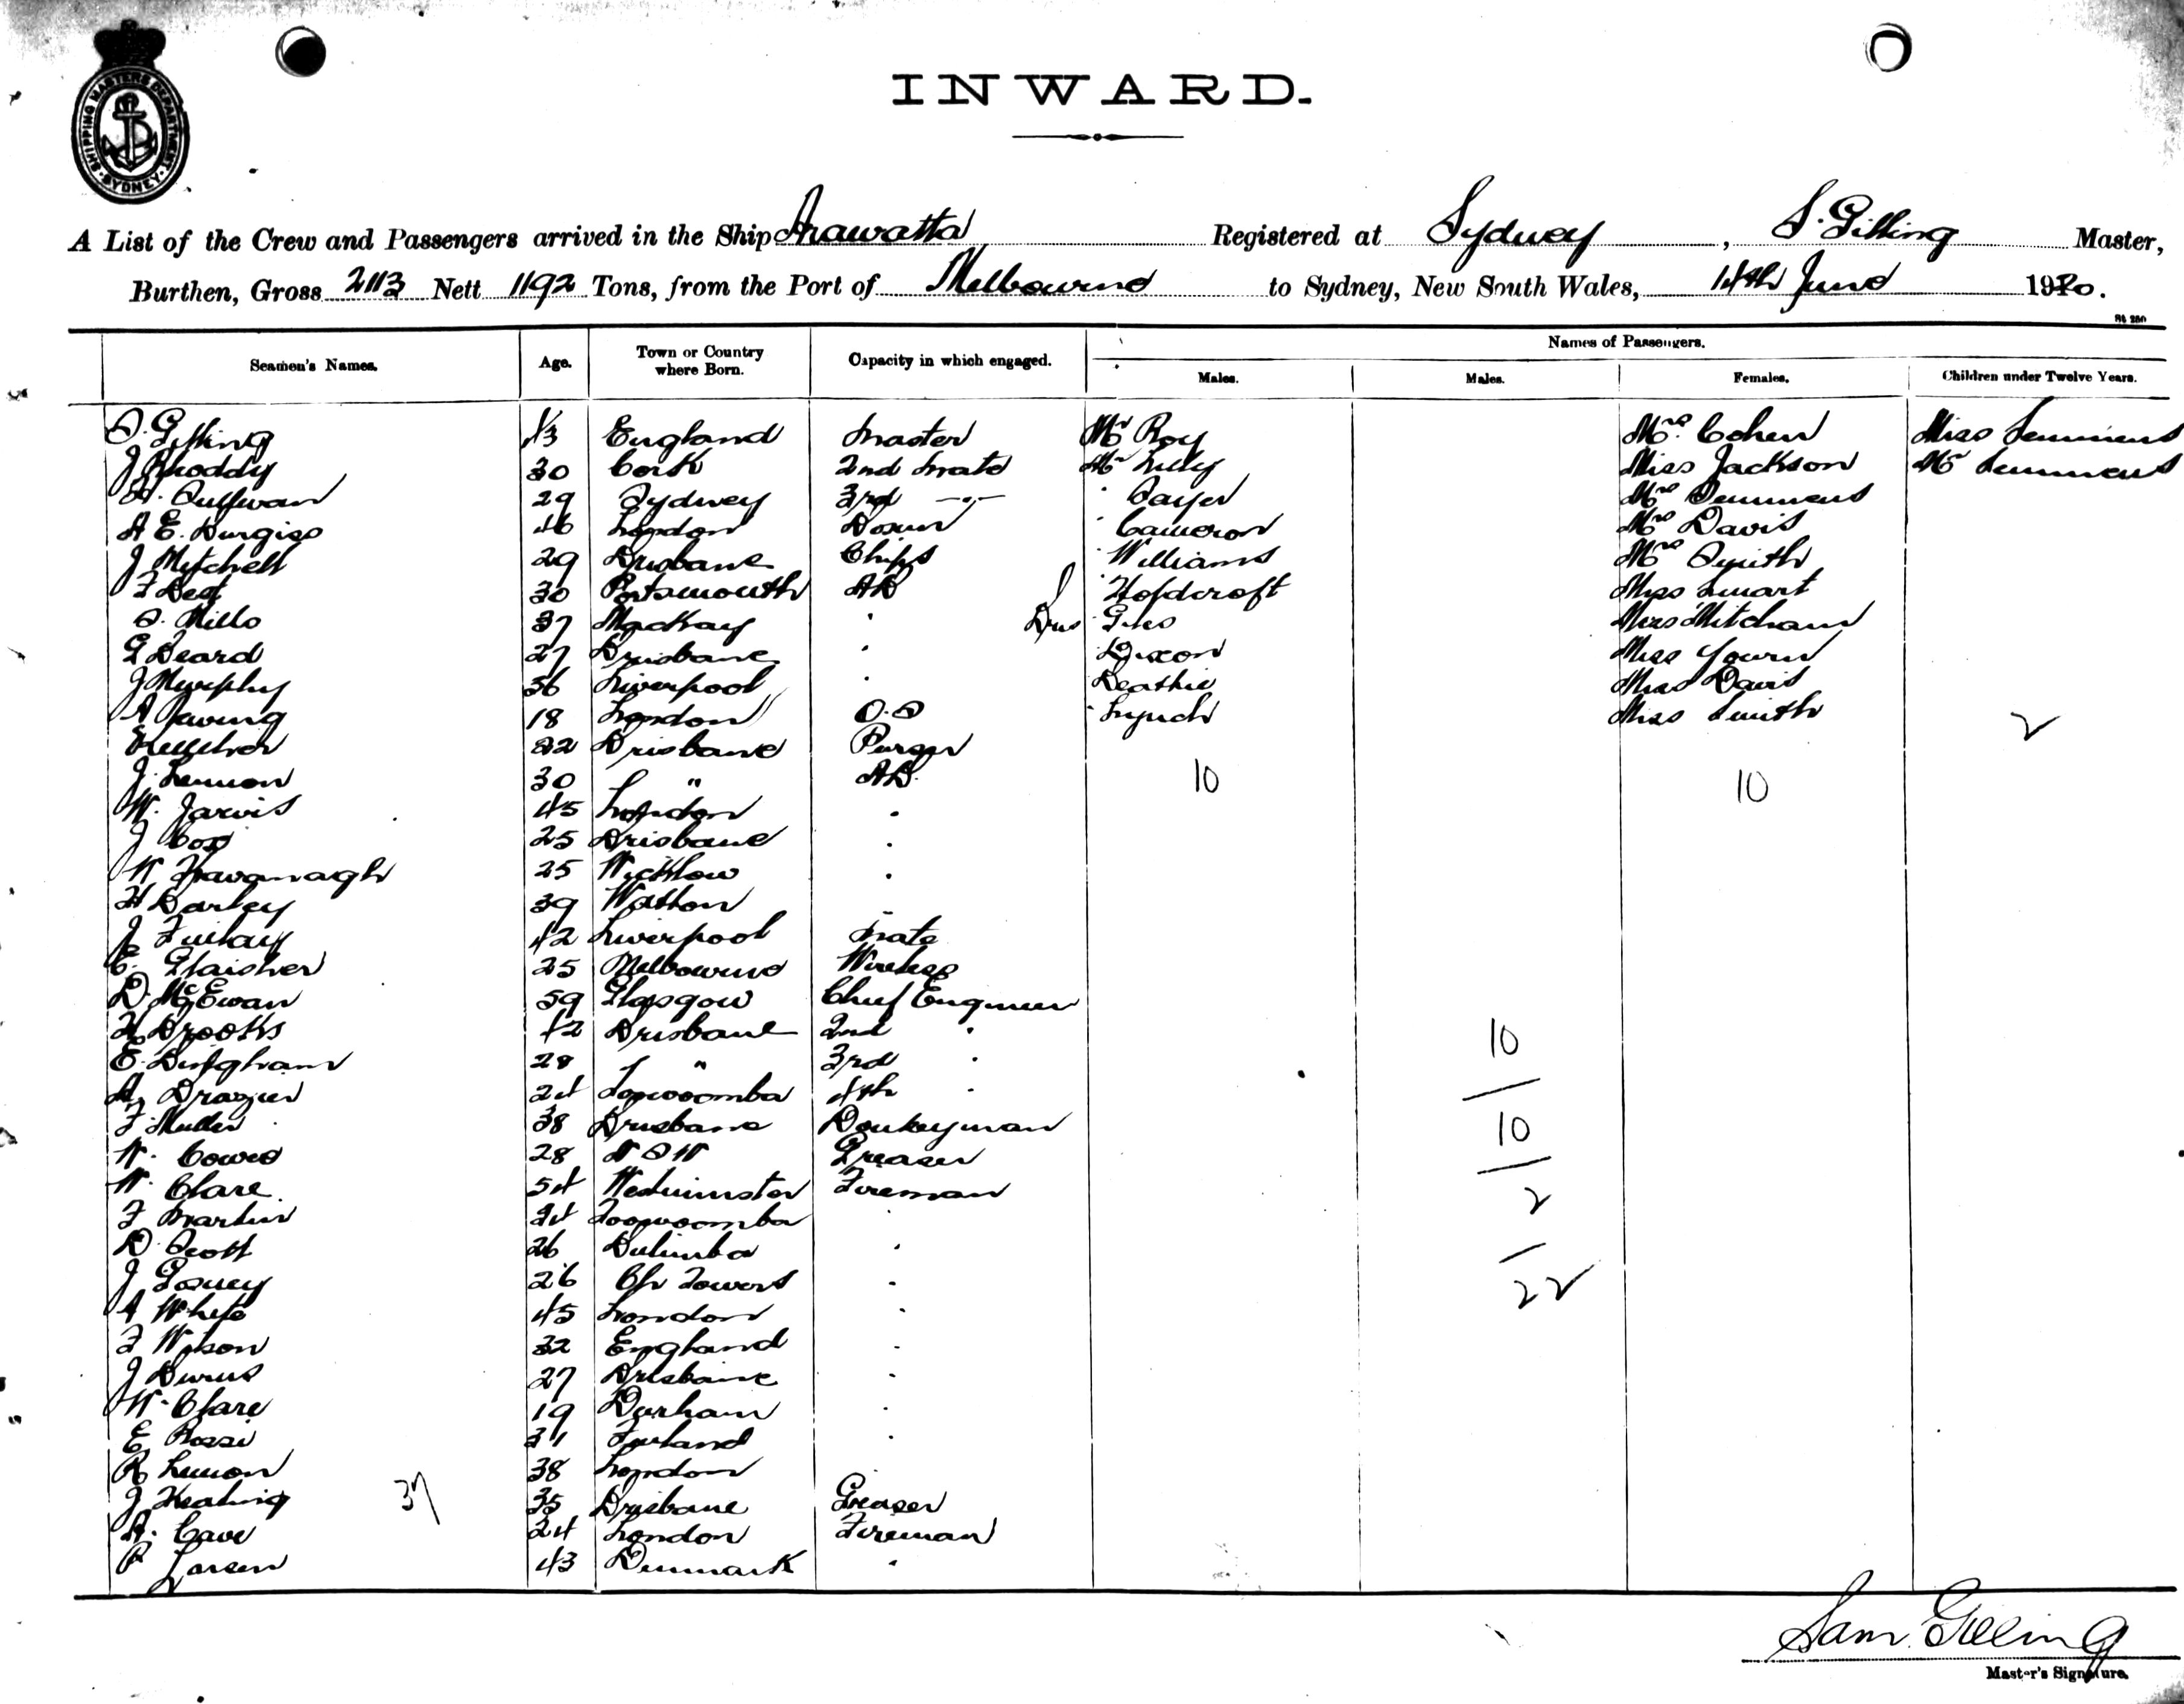 SHIPPING MASTERS DEPARTMENT · SYDNEY ·
INWARD.
A List of the Crew and Passengers arrived in the Ship Arawatta Registered at Sydney, S. Gilling Master,
Burthen, Gross 2113 Nett 1192 Tons, from the Port of Melbourne to Sydney, New South Wales, 14th June 1920.
Names of Passengers.
Seamen's Names. Age. Town or Country where Born. Capacity in which engaged. Males. Males. Females. Children under Twelve Years.
S. Gilling 43 England Master Mr Roy Mrs. Cohen Miss Semmens
J Rhoddy 30 Cork 2nd Mate Mr Lilly Miss Jackson Mr Semmens
Sullivan 29 Sydney 3rd —"— " Sayer Mrs Semmens
A E. Burgiss 46 London Bosun " Cameron Mrs Davis
J Mitchell 29 Brisbane Chips " Williams Mrs Smith
F Best 30 Portsmouth AB " Holdcroft Miss Smart
S. Mills 37 Mackay " Giles Miss Mitcham
G Beard 27 Brisbane " Dixon Miss
J Murphy 36 Liverpool " Beathie Miss Davis
A 18 London O.S " Lynch Miss Smith
Kelleher 22 Brisbane Purser 2
J. Lennon 30 " AB. 10 10
W. Jarvis 45 London "
J Cox 25 Brisbane "
W Kavanagh 25 Wicklow "
H Darley 39 Watton "
J Finlay 42 Liverpool Mate
E. Glaisher 25 Melbourne Wireless
D. McEwan 59 Glasgow Chief Engineer
H Brooks 42 Brisbane 2nd " 10
E. Bingham 28 " 3rd "
A Brazier 24 Toowoomba 4th "
F Muller 38 Brisbane Donkeyman 10
W. Cowed 28 N S W Greaser
W. Clare 54 Westminster Fireman 2
F Martin 24 Toowoomba "
D. Scott 26 Bulimba "
J Gosney 26 Ch Towers " 22
A White 45 London "
F Wilson 32 England "
J Burns 27 Brisbane "
W. Clare 19 Durham "
E Rossi 31 "
R Lennon 38 London
J Keating 37 35 Brisbane Greaser
A. Cave 24 London Fireman
P Larsen 43 Denmark "
Sam. Gilling
Master's Signature.